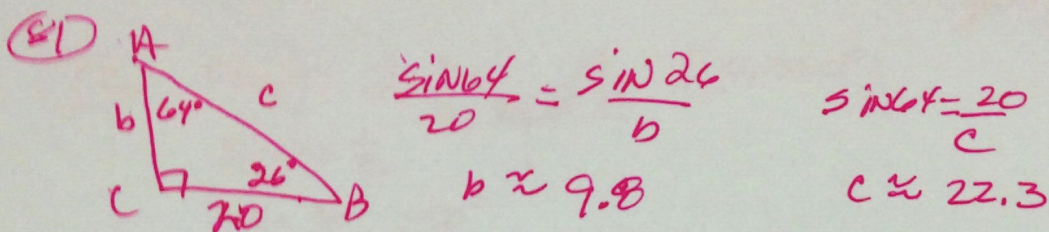 81
A
b 64° c
C 26° B
20
sin64/20 = sin26/b
b ≈ 9.8
sin64 = 20/c
c ≈ 22.3